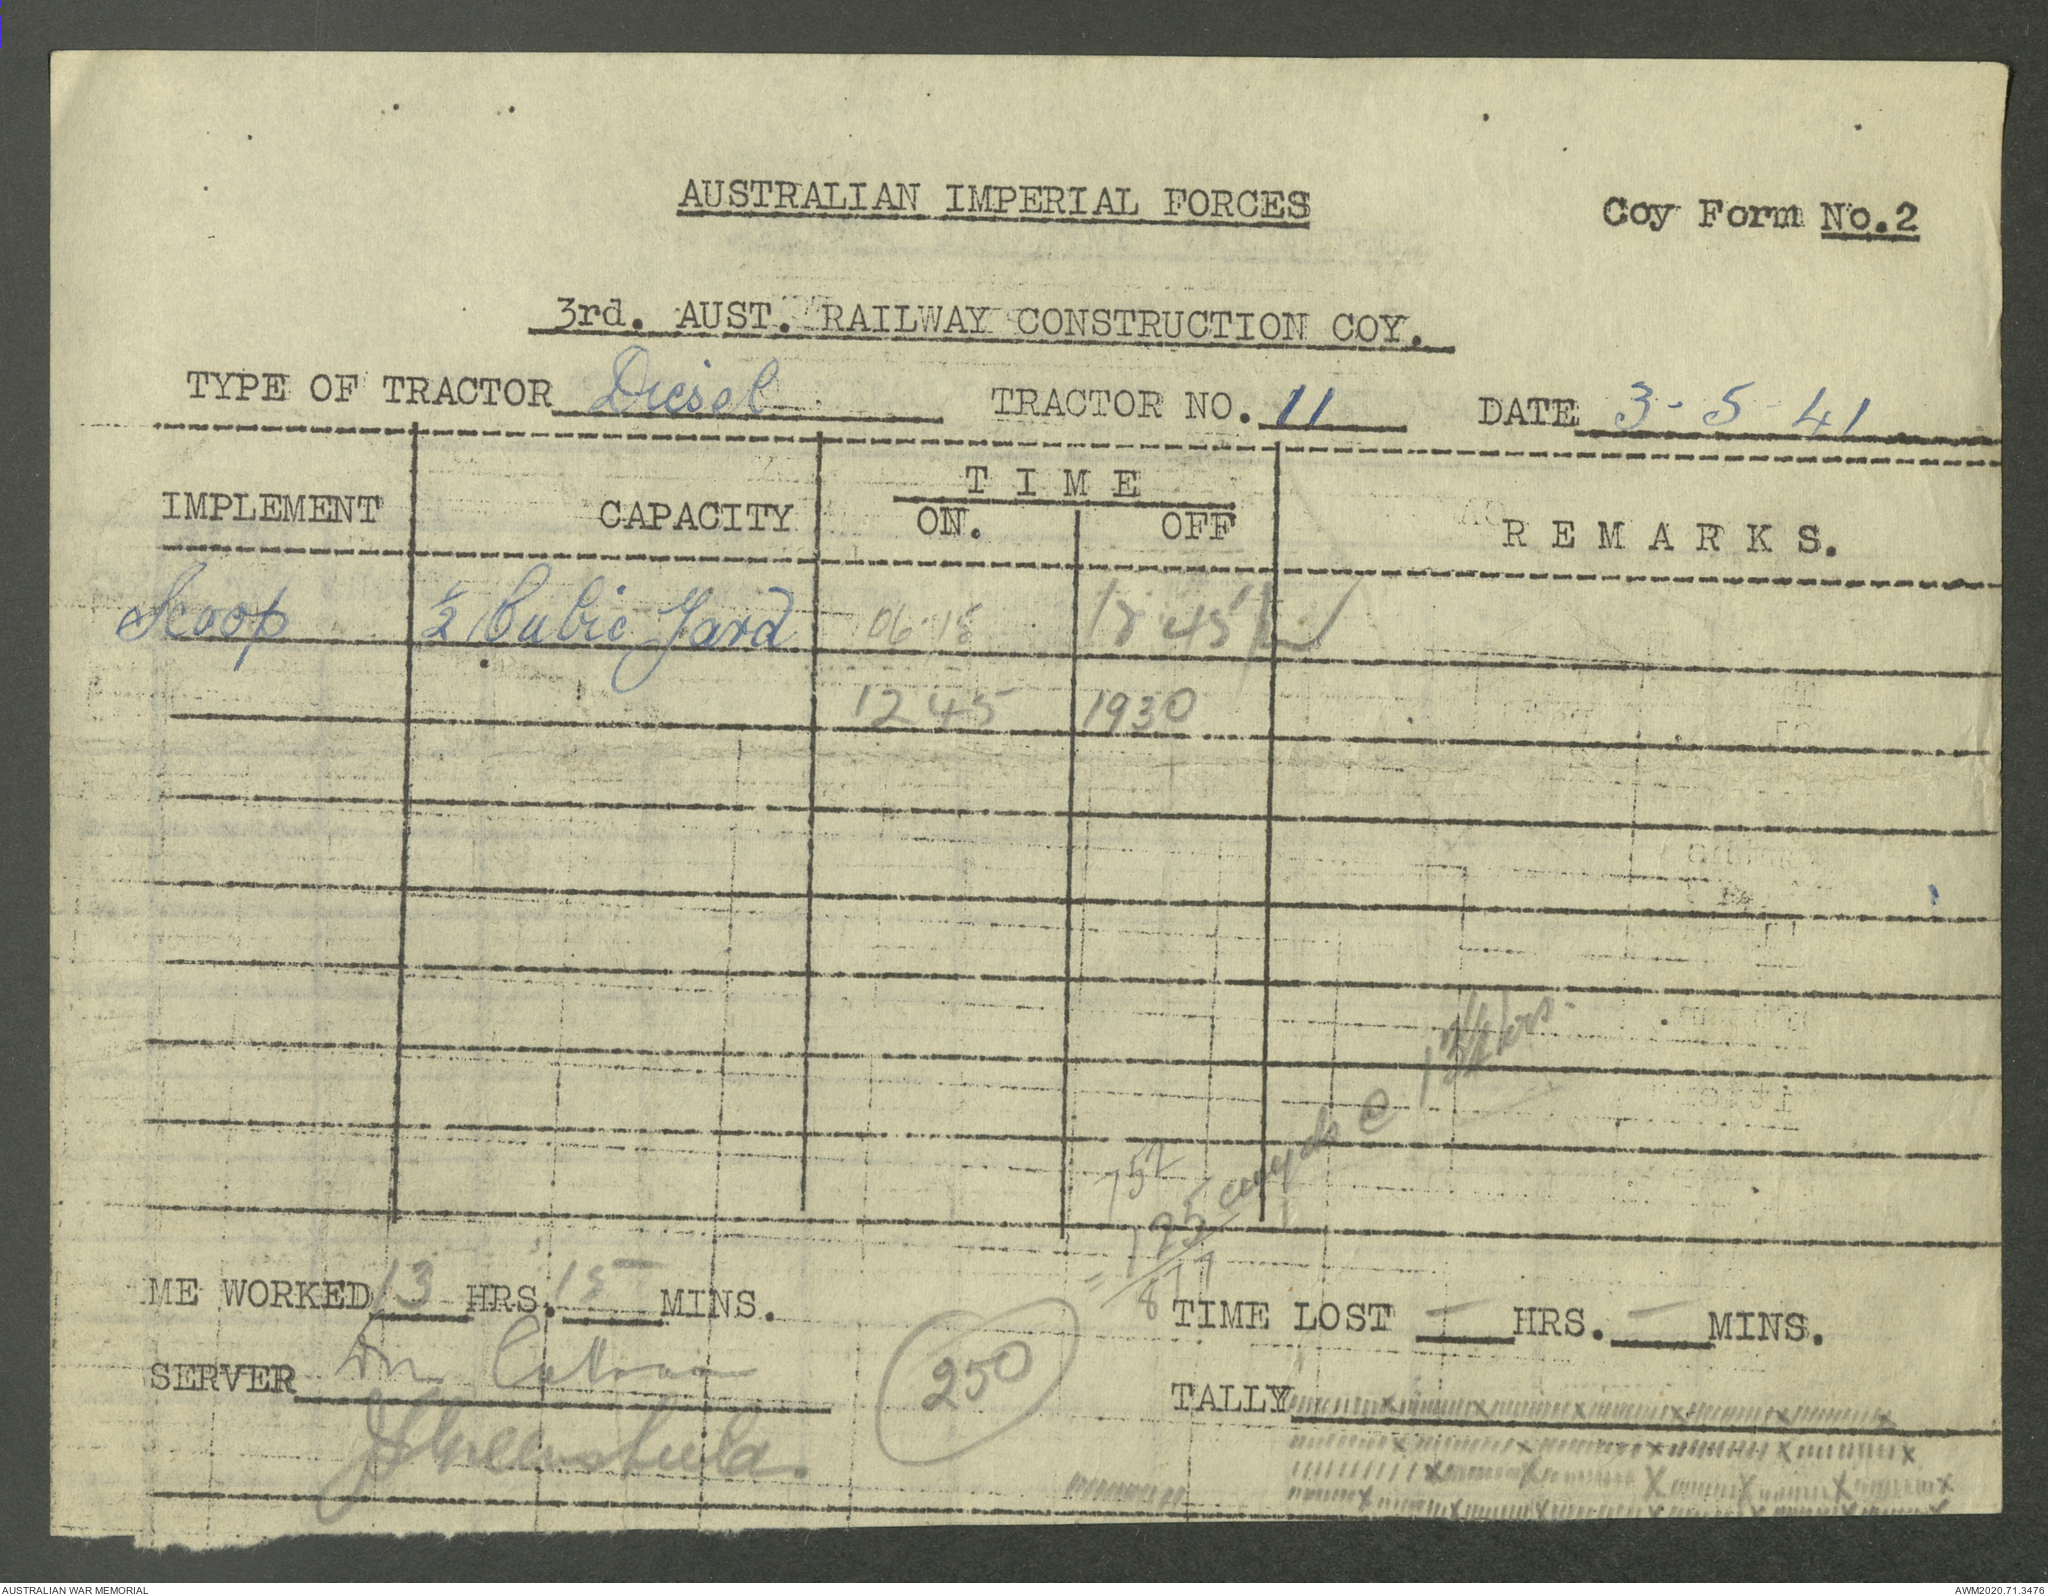 AUSTRALIAN IMPERIAL FORCES
Coy Form No.2
3rd. AUST. RAILWAY CONSTRUCTION COY.
TYPE OF TRACTOR Diesel TRACTOR NO. 11 DATE 3-5-41
IMPLEMENT CAPACITY TIME ON. OFF REMARKS.
Scoop ½ Cubic Yard 06 15 12 45
12 45 1930
125 cuyds @ 13¼ hrs.
ME WORKED 13 HRS. 15 MINS.
TIME LOST - HRS. - MINS.
SERVER
250
TALLY
AUSTRALIAN WAR MEMORIAL
AWM2020.71.3476